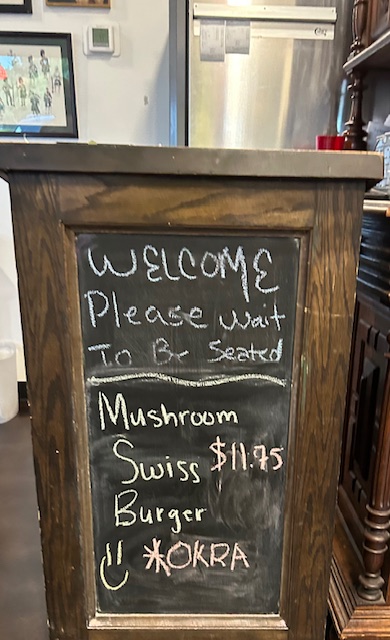 WELCOME
Please wait
To Be Seated
Mushroom
Swiss $11.75
Burger
*OKRA